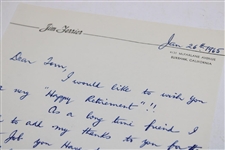 Jim Ferrier
Jan 26th 1965
BURBANK, CALIFORNIA
Dear Tom,
I would like to wish you
a very "Happy Retirement"!!
As a long time friend I
to add my thanks to you for
Job you have